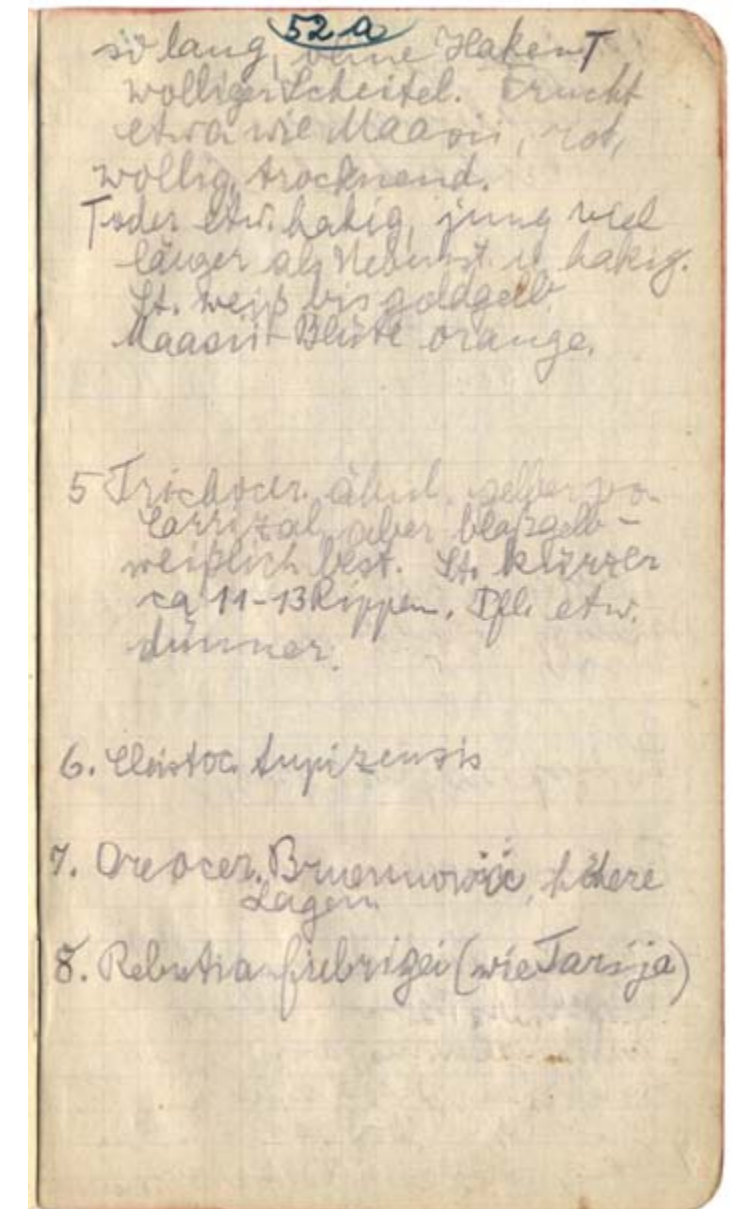 52a
so lang, ohne Haken T
wolliger Scheitel. Frucht
etwa wie Maasii, rot,
wollig, trocknend.
T oder etw. hakig, jung viel
länger als Nebenst. u. hakig.
St. weiß bis goldgelb.
Maasii-Blüte orange.
5 Trichocer. ähnl. gelber po.
Carrizal, aber blaßgelb-
weißlich best. St. kürzer
ca 11-13 Rippen. Pfl. etw.
dünner.
6. Cleistoc. tupizensis
7. Oreocer. Bruennowii, höhere
Lagen
8. Rebutia fiebrigii (wie Tarija)